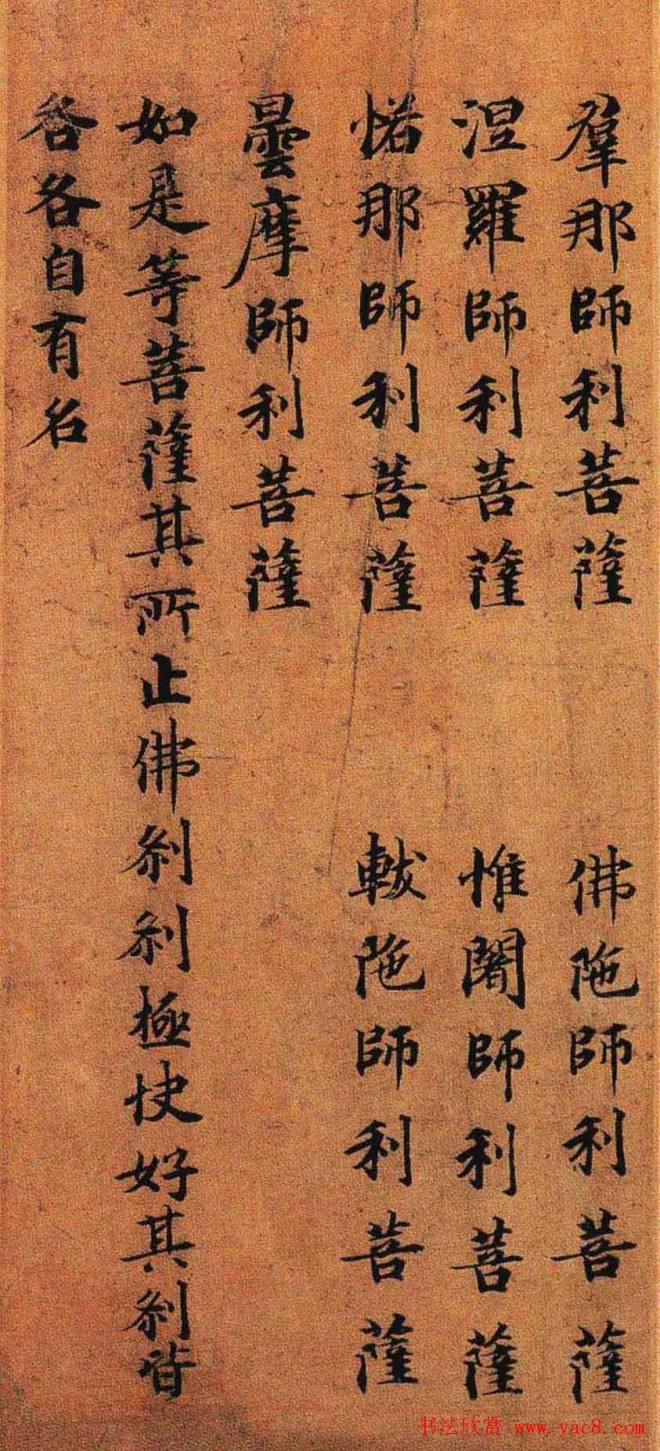 羣那師利菩薩 佛陁師利菩薩
涅羅師利菩薩 惟闍師利菩薩
那師利菩薩 軷陁師利菩薩
曇摩師利菩薩
如是等菩薩其所止佛刹刹極快好其刹皆
各各自有名
书法欣赏·www.yac8.com